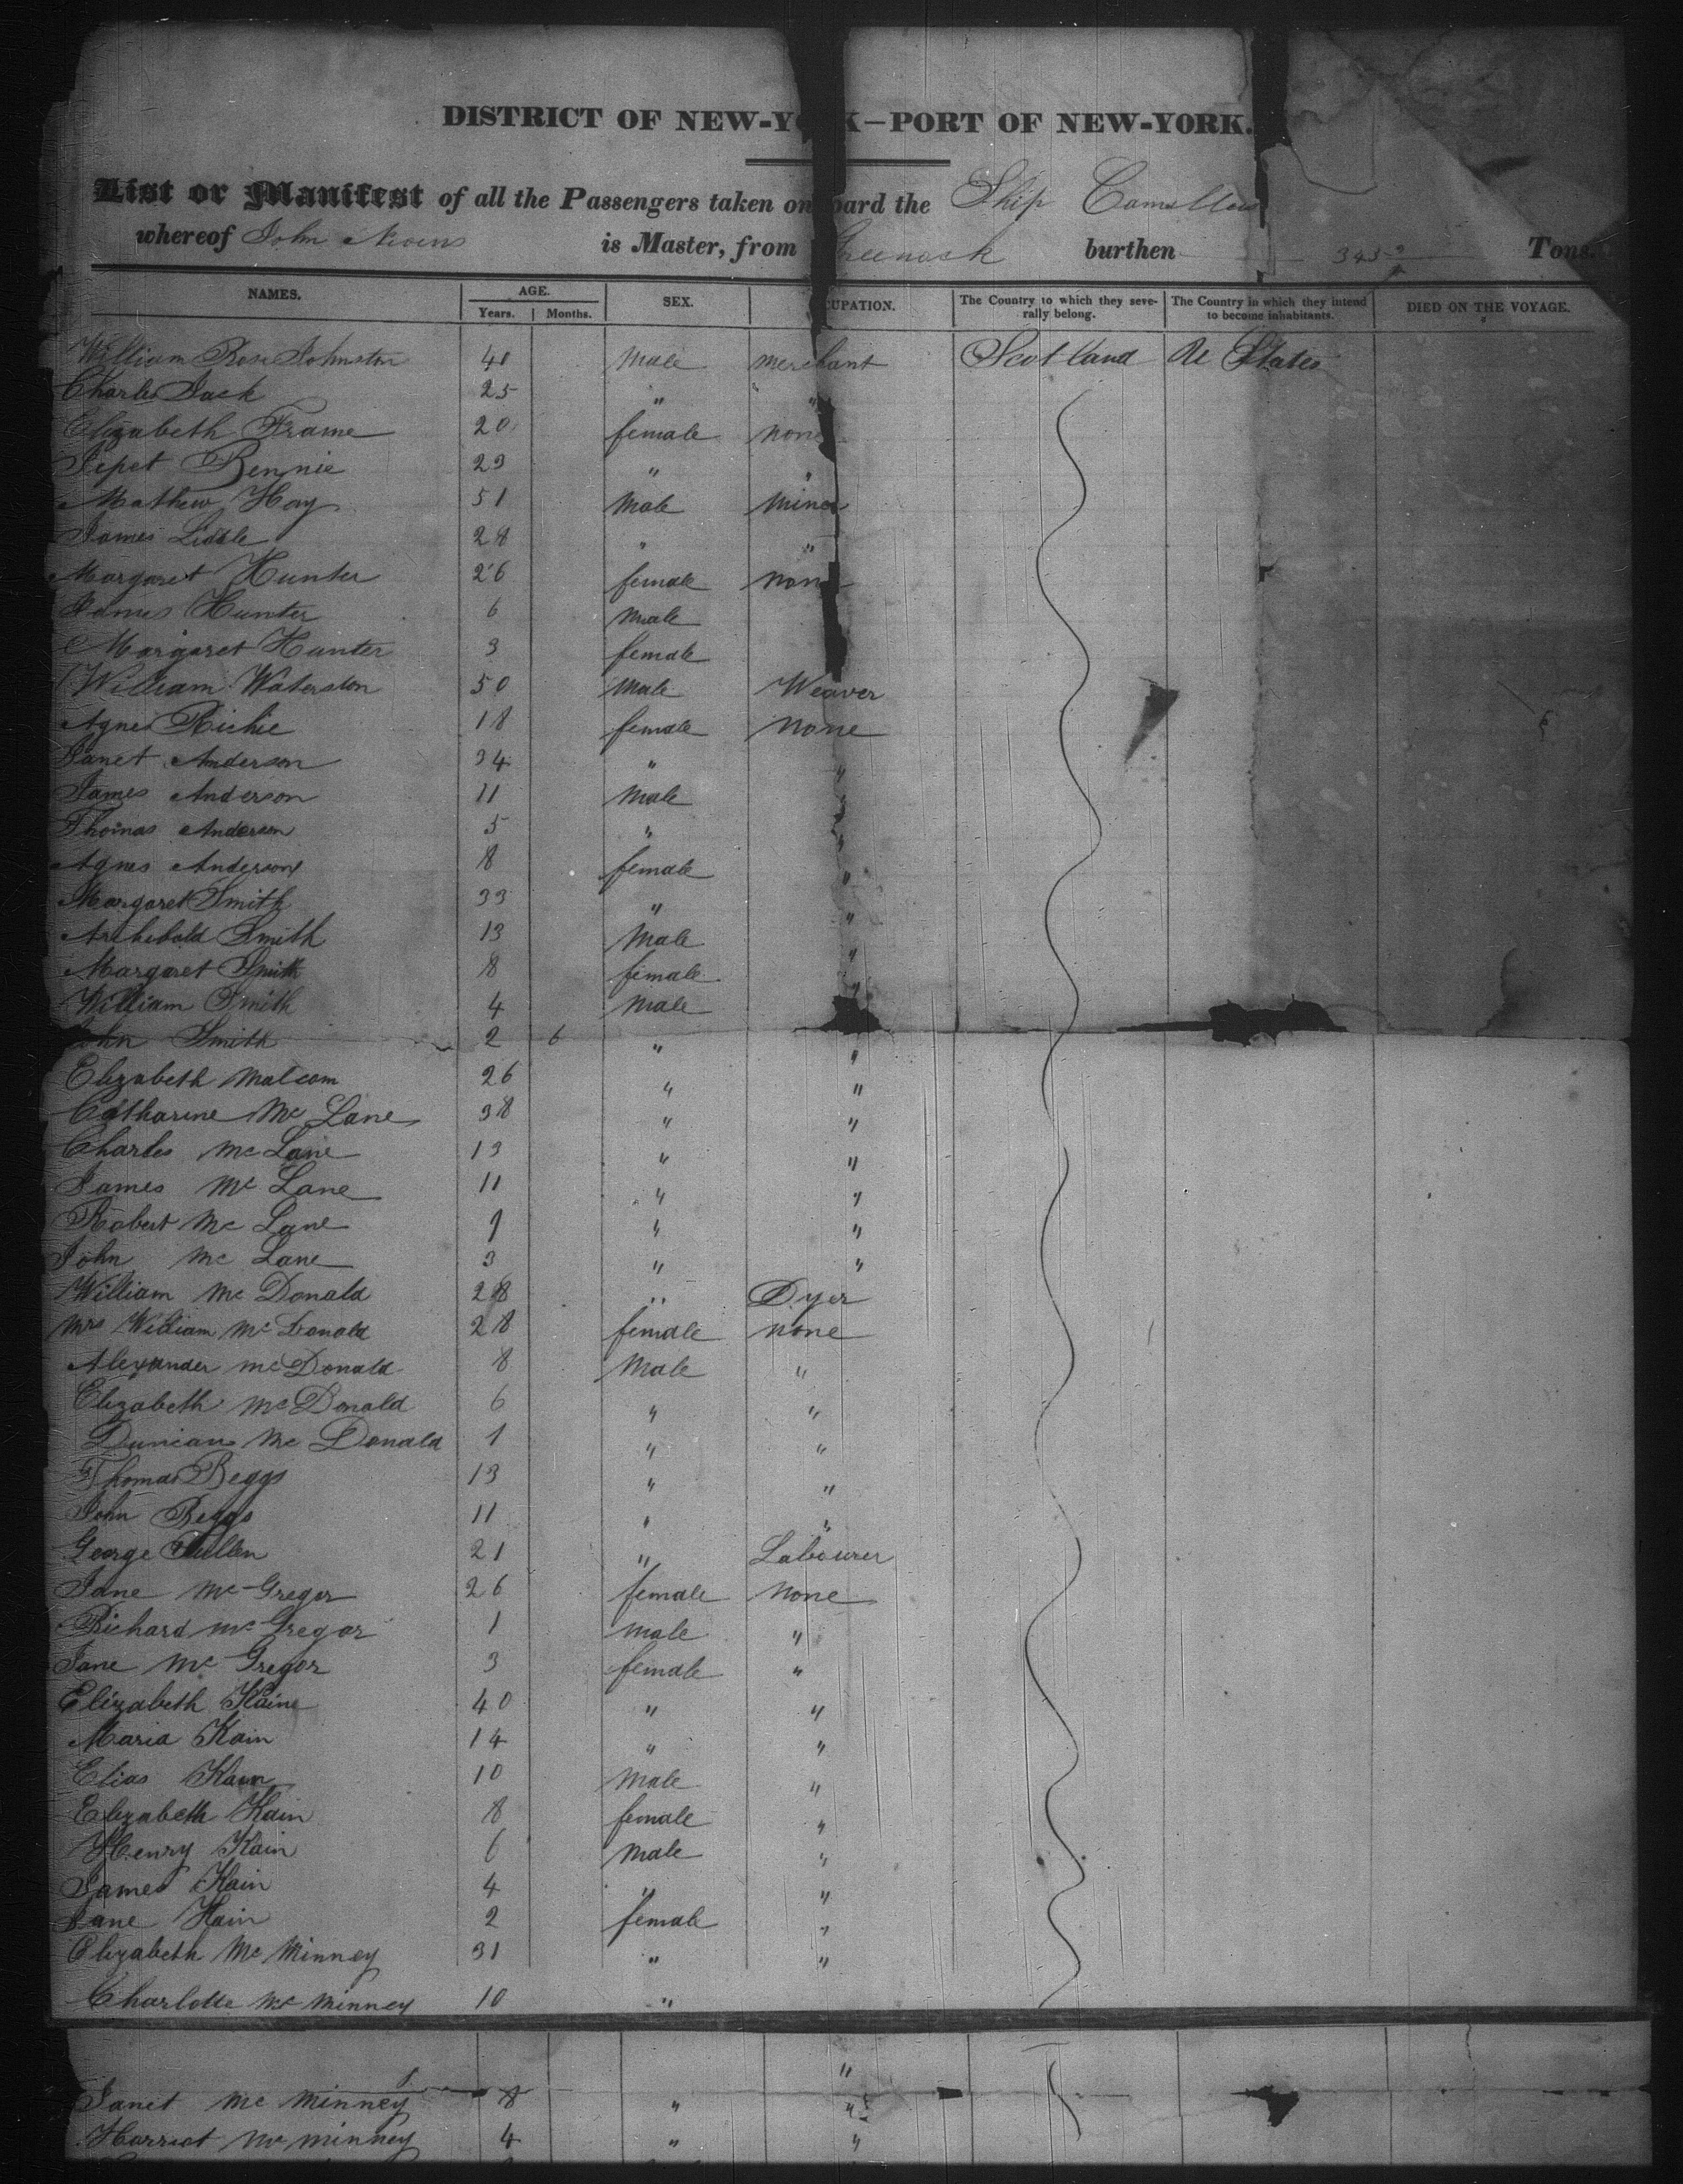 DISTRICT OF NEW-YORK—PORT OF NEW-YORK.
List or Manifest of all the Passengers taken on board the Ship Camillus
whereof John is Master, from Greenock burthen 343 Tons.
NAMES. AGE. Years. Months. SEX. OCCUPATION. The Country to which they severally belong. The Country in which they intend to become inhabitants. DIED ON THE VOYAGE.
William Rose Johnston 41 Male merchant Scotland States
Charles Jack 25 " "
Elizabeth Frame 20 female none
Bennie 23 " "
Mathew Hay 51 Male Miner
James Liddle 28 " "
Margaret Hunter 26 female none
James Hunter 6 male
Margaret Hunter 3 female
William Waterston 50 Male Weaver
Agnes Richie 18 female none
Janet Anderson 34 " "
James Anderson 11 Male "
Thomas Anderson 5 " "
Agnes Anderson 8 female "
Margaret Smith 33 " "
Archebald Smith 13 Male "
Margaret Smith 8 female "
William Smith 4 Male "
John Smith 2 6 " "
Elizabeth Malcom 26 " "
Catharine Mc Lane 38 " "
Charles Mc Lane 13 " "
James Mc Lane 11 " "
Robert Mc Lane 9 " "
John Mc Lane 3 " "
William Mc Donald 28 " Dyer
Mrs William Mc Donald 28 female none
Alexander Mc Donald 8 Male "
Elizabeth Mc Donald 6 " "
Duncan Mc Donald 1 " "
Thomas Beggs 13 " "
John Beggs 11 " "
George 21 " Labourer
Jane Mc Gregor 26 female none
Richard Mc Gregor 1 male "
Jane Mc Gregor 3 female "
Elizabeth Kaine 40 " "
Maria Kain 14 " "
Elias Kain 10 Male "
Elizabeth Kain 8 female "
Henry Kain 6 Male "
James Kain 4 " "
Jane Kain 2 female "
Elizabeth Mc Minney 31 " "
Charlotte Mc Minney 10 " "
Janet Mc Minney 8 " "
Harriot Mc Minney 4 " "